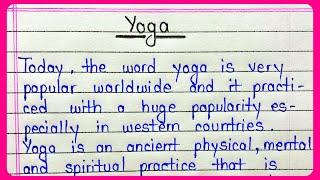 Yoga
Today, the word yoga is very
popular worldwide and it practi-
ced with a huge popularity es-
pecially in western countries.
Yoga is an ancient physical, mental
and spiritual practice that is